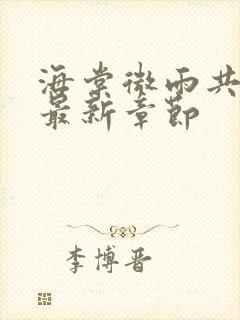 海棠微雨共
最新章节
李博晋